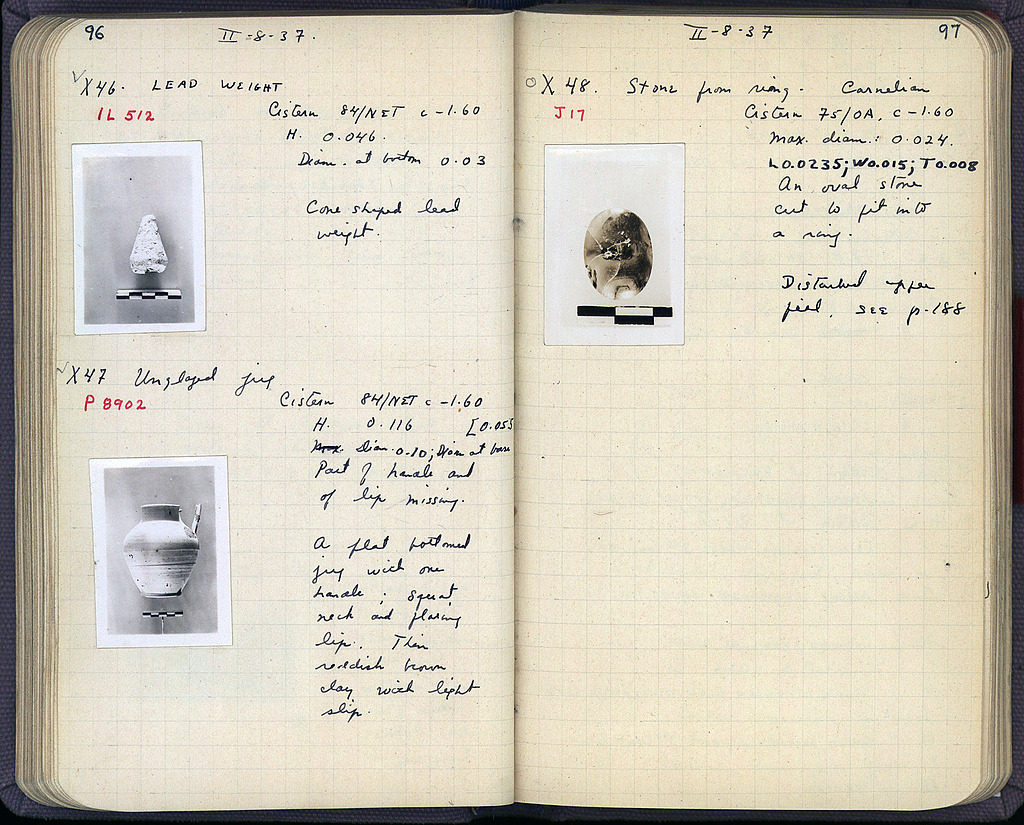 96
II-8-37.
√X46. LEAD WEIGHT
IL 512
Cistern 84/NET c -1.60
H. 0.046.
Diam. at bottom 0.03
Cone shaped lead
weight.
√X47 Unglazed jug
P 8902
Cistern 84/NET c -1.60
H. 0.116 [0.055
Max. Diam. 0.10; Diam at base
Part of handle and
of lip missing.
A flat bottomed
jug with one
handle; squat
neck and flaring
lip. Thin
reddish brown
clay with light
slip.
II-8-37
97
X 48. Stone from ring. Carnelian
J 17
Cistern 75/OA, c -1.60
Max. diam.: 0.024.
L0.0235; W0.015; T0.008
An oval stone
cut to fit into
a ring.
Disturbed upper
fill, SEE p. 188